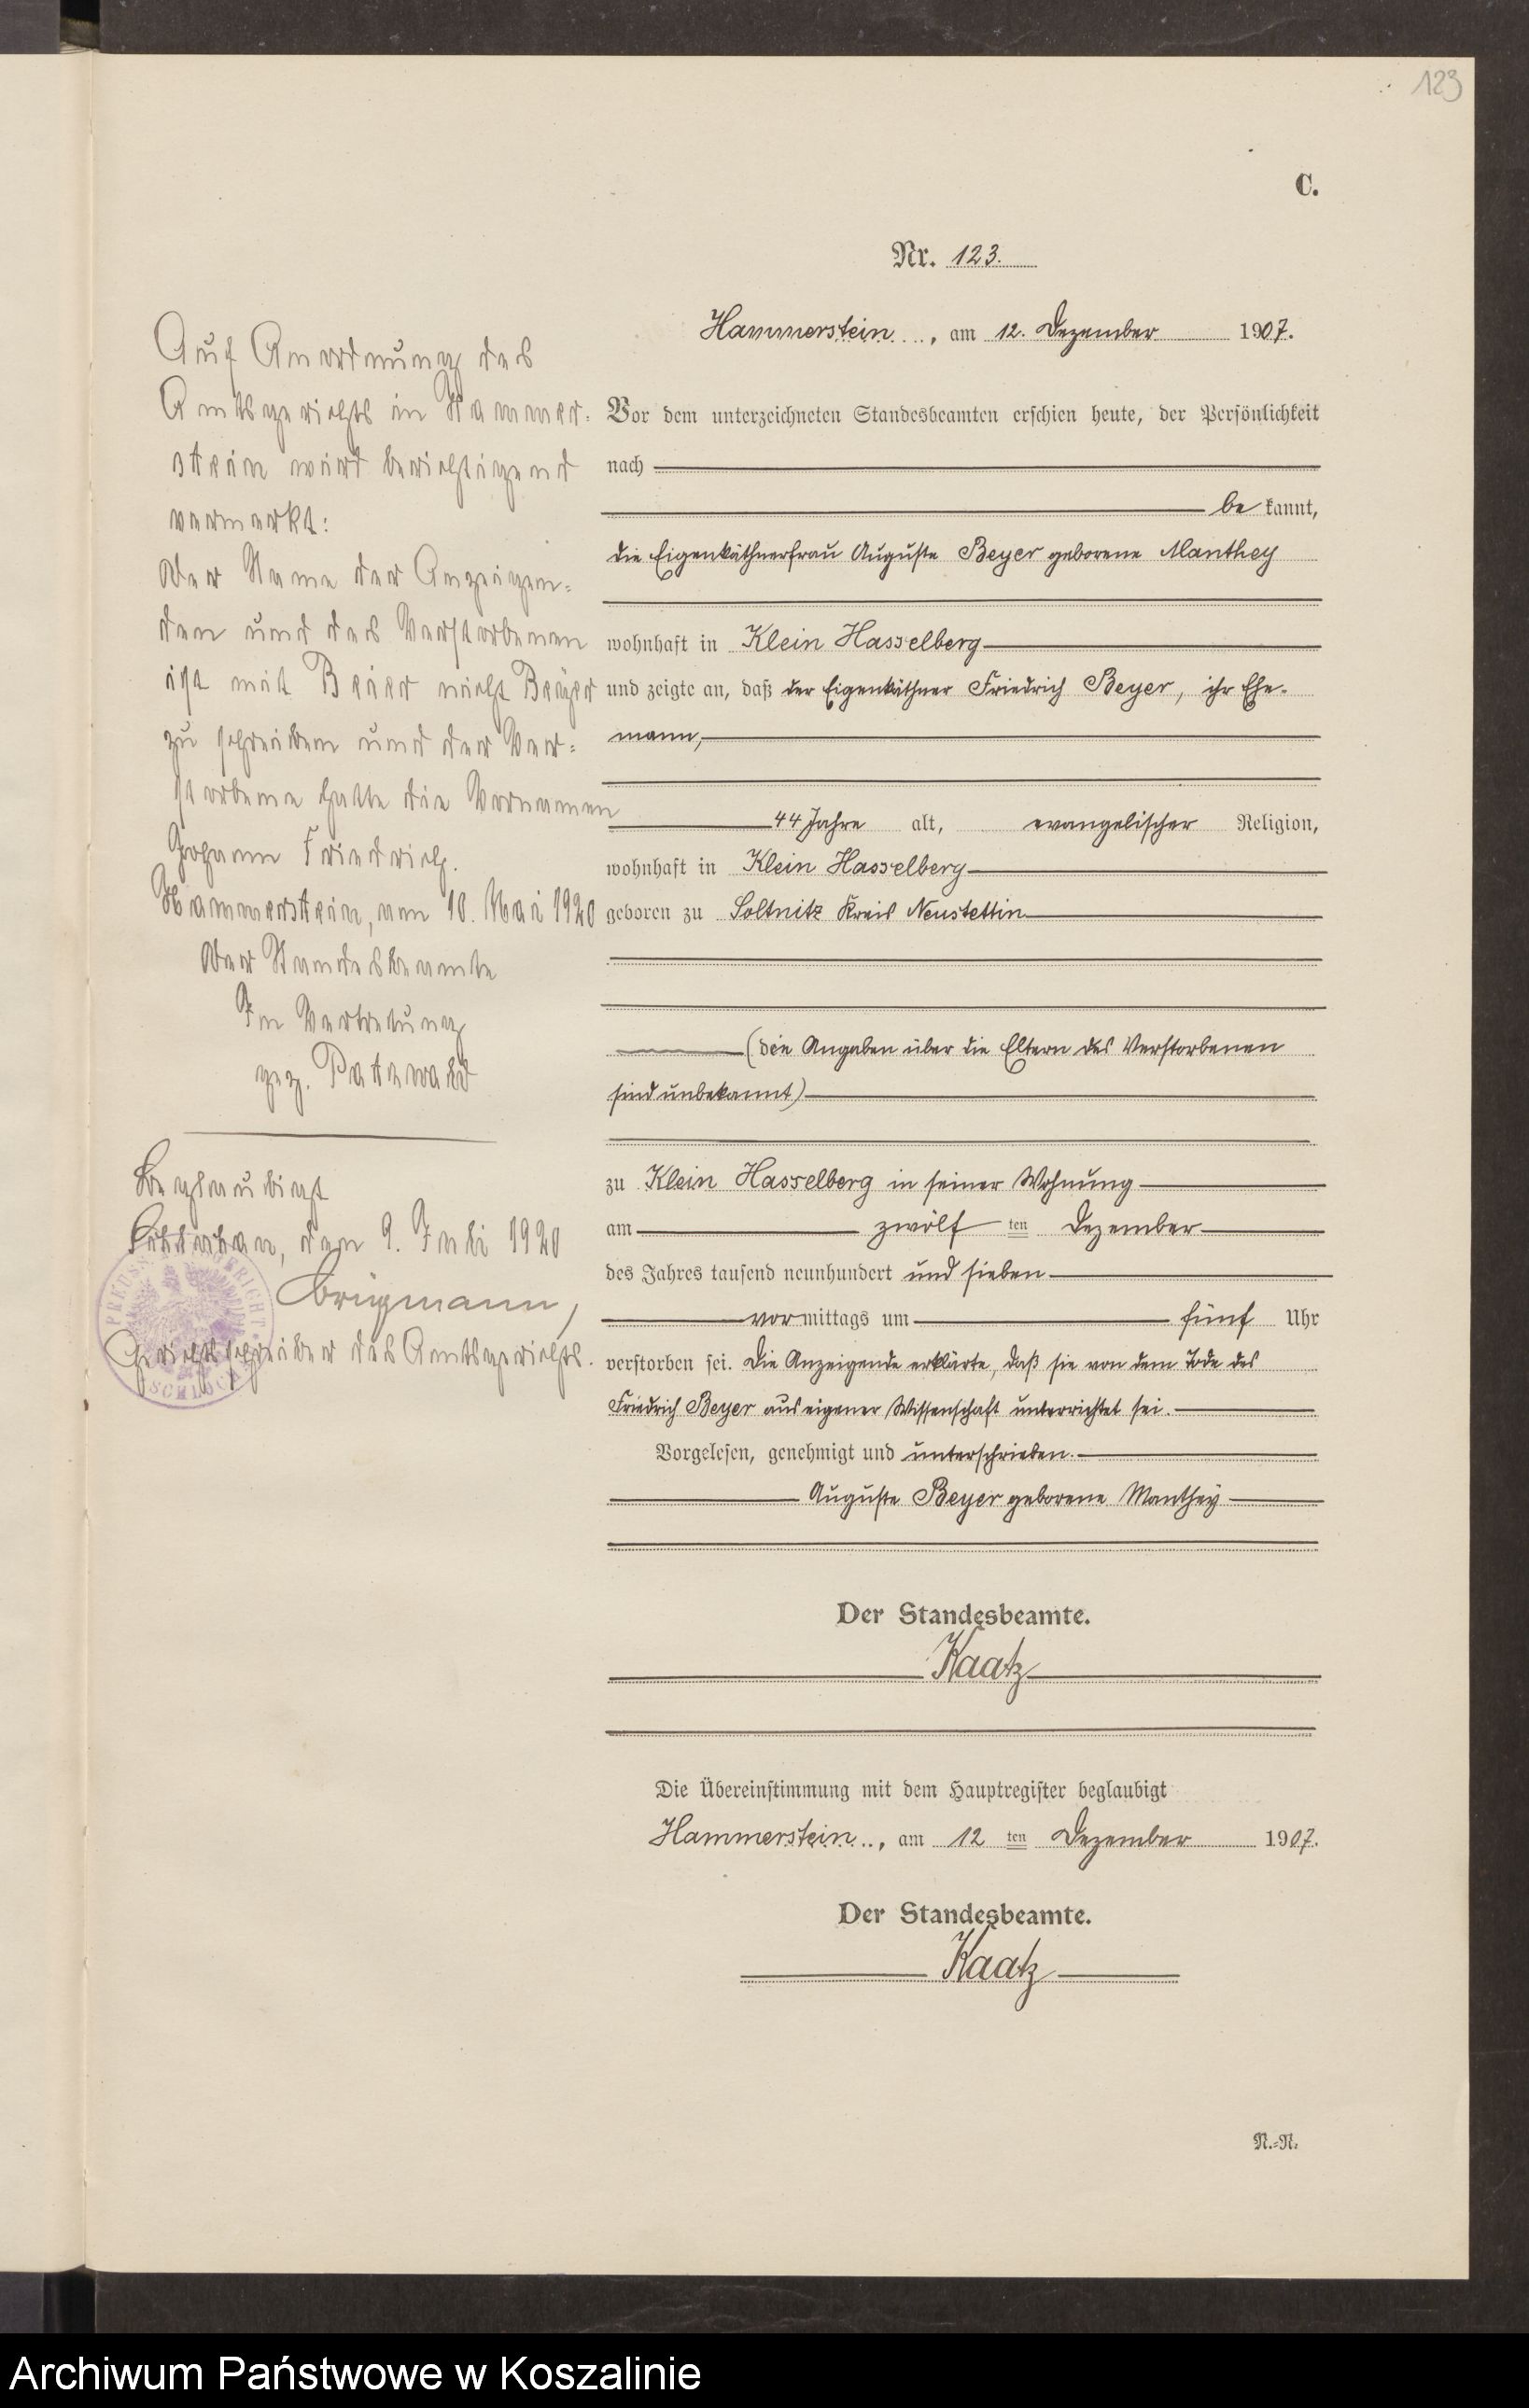 123
C.
Nr. 123.
Hammerstein, am 12. Dezember 1907.
Vor dem unterzeichneten Standesbeamten erschien heute, der Persönlichkeit
nach
be kannt,
die Eigenkäthnerfrau Auguste Beyer geborene Manthey
wohnhaft in Klein Hasselberg
und zeigte an, daß der Eigenkäthner Friedrich Beyer, ihr Ehe-
mann,
44 Jahre alt, evangelischer Religion,
wohnhaft in Klein Hasselberg
geboren zu Soltnitz Kreis Neustettin
(die Angaben über die Eltern des Verstorbenen
sind unbekannt)
zu Klein Hasselberg in seiner Wohnung
am zwölf ten Dezember
des Jahres tausend neunhundert und sieben
vormittags um fünf Uhr
verstorben sei. Die Anzeigende erklärte, daß sie von dem Tode des
Friedrich Beyer aus eigener Wissenschaft unterrichtet sei.
Vorgelesen, genehmigt und unterschrieben.
Auguste Beyer geborene Manthey
Der Standesbeamte.
Kaatz
Die Übereinstimmung mit dem Hauptregister beglaubigt
Hammerstein, am 12 ten Dezember 1907.
Der Standesbeamte.
Kaatz
N.=N.
Auf Anordnung des
Amtsgerichts in Hammer-
stein wird berichtigend
vermerkt:
Der Name der Anzeigen-
den und des Verstorbenen
ist mit Beier nicht Beyer
zu schreiben und der Ver-
storbene hatte die Vornamen
Johann Friedrich.
Hammerstein, am 10. Mai 1920
Der Standesbeamte
In Vertretung
gez.
Beglaubigt
den 9. Juli 1920
Brügmann,
Gerichtsschreiber des Amtsgerichts.
Archiwum Państwowe w Koszalinie